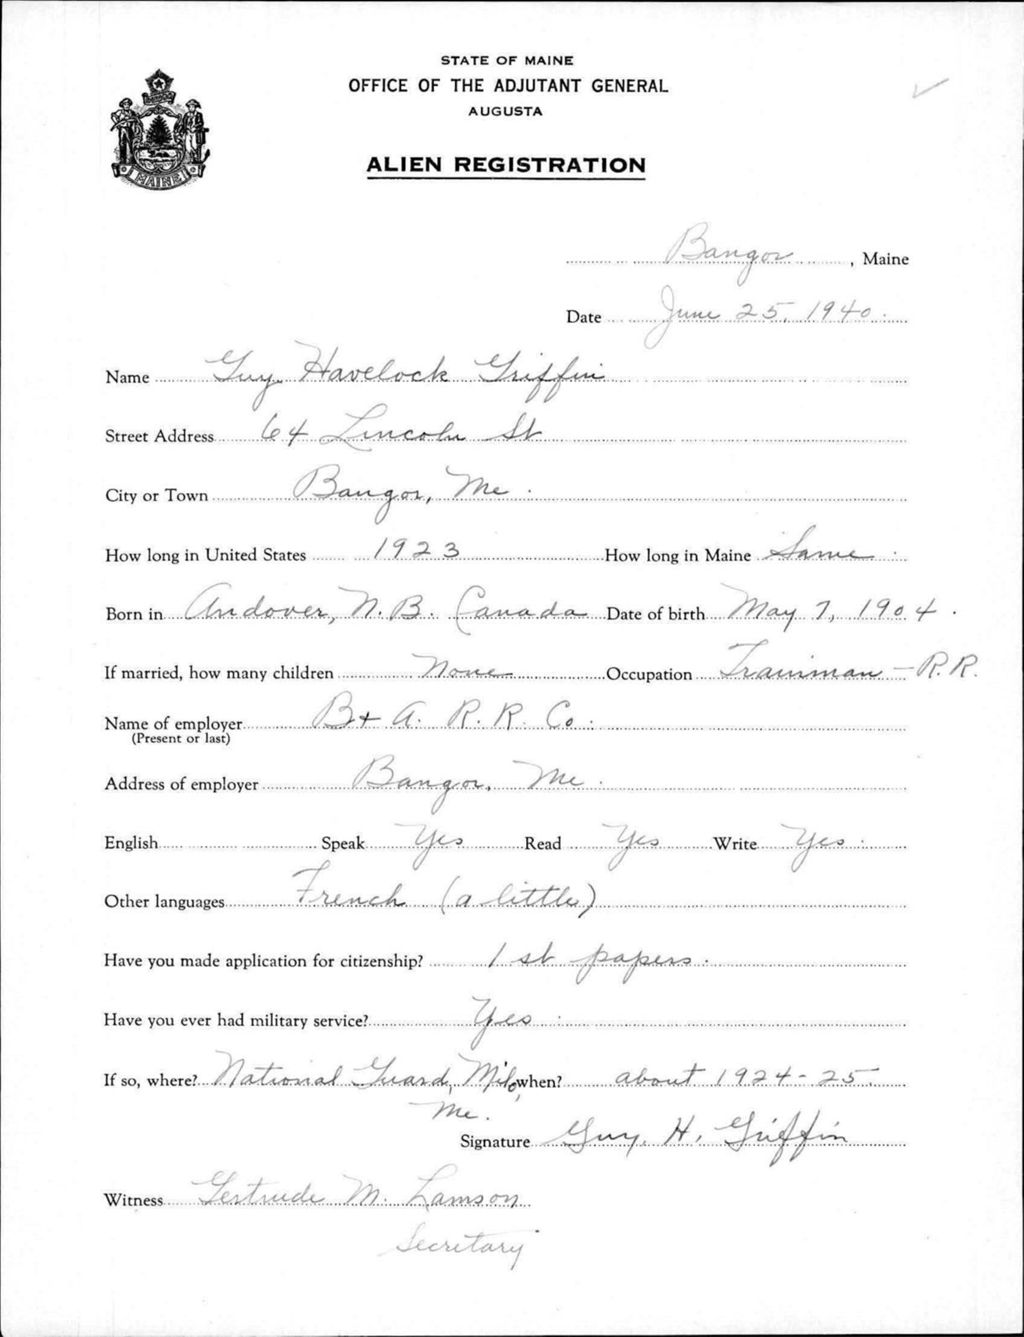 STATE OF MAINE
OFFICE OF THE ADJUTANT GENERAL
AUGUSTA
ALIEN REGISTRATION
MAINE
Bangor, Maine
Date June 25, 1940.
Name Guy Havelock Griffin
Street Address 64 Lincoln St
City or Town Bangor, Me.
How long in United States 1923 How long in Maine Same.
Born in Andover, N.B. Canada Date of birth May 7, 1904.
If married, how many children None Occupation Trainman - R.R.
Name of employer B + A. R. R. Co.
(Present or last)
Address of employer Bangor, Me.
English Speak Yes Read Yes Write Yes.
Other languages French (a little)
Have you made application for citizenship? 1st papers.
Have you ever had military service? Yes.
If so, where? National Guard, Milo, when? about 1924-25.
Me.
Signature Guy H. Griffin
Witness Gertrude M. Lamson
Secretary